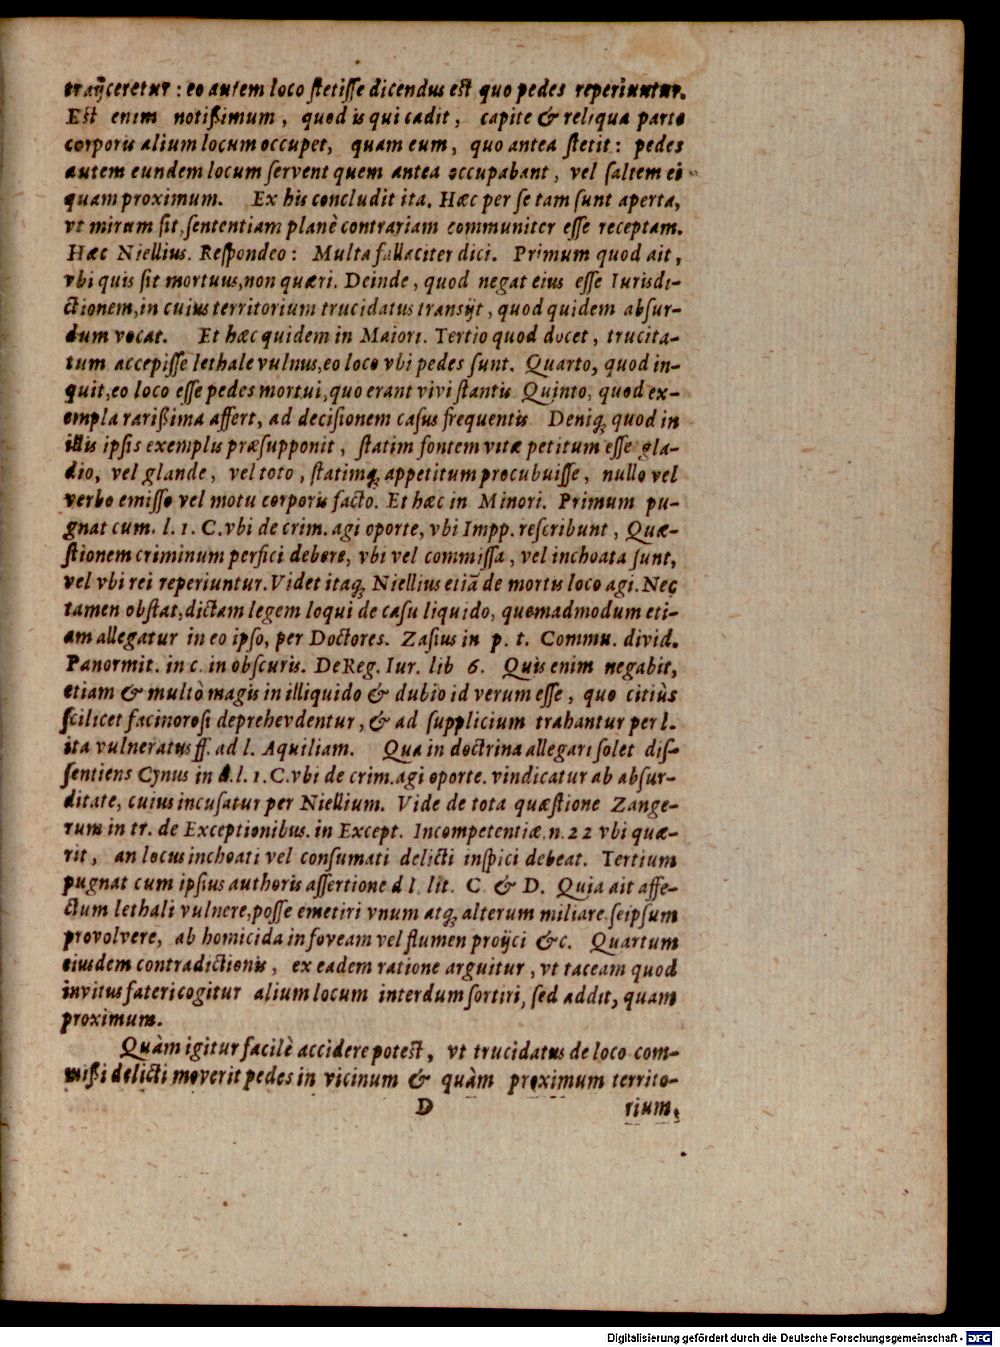 traijceretur : eo autem loco ſtetiſſe dicendus eſt quo pedes reperiuntur.
Eſt enim notißimum, quod is qui cadit, capite & reliqua parte
corporis alium locum occupet, quam eum, quo antea ſtetit : pedes
autem eundem locum ſervent quem antea occupabant, vel ſaltem ei
quam proximum. Ex his concludit ita. Hæc per ſe tam ſunt aperta,
vt mirum ſit, ſententiam planè contrariam communiter eſſe receptam.
Hæc Niellius. Reſpondeo : Multa fallaciter dici. Primum quod ait,
vbi quis ſit mortuus, non quæri. Deinde, quod negat eius eſſe Iurisdi-
ctionem, in cuius territorium trucidatus tranſijt, quod quidem abſur-
dum vocat. Et hæc quidem in Maiori. Tertio quod docet, trucita-
tum accepiſſe lethale vulnus, eo loco vbi pedes ſunt. Quarto, quod in-
quit, eo loco eſſe pedes mortui, quo erant vivi ſtantis Quinto, quod ex-
empla rarißima affert, ad deciſionem caſus frequentis Deniq; quod in
illis ipſis exemplis præſupponit, ſtatim fontem vitæ petitum eſſe gla-
dio, vel glande, vel toto, ſtatimq; appetitum procubuiſſe, nullo vel
verbo emiſſo vel motu corporis facto. Et hæc in Minori. Primum pu-
gnat cum. l. 1. C. vbi de crim. agi oporte, vbi Impp. reſcribunt, Quæ-
ſtionem criminum perfici debere, vbi vel commiſſa, vel inchoata ſunt,
vel vbi rei reperiuntur. Videt itaq; Niellius etiã de mortis loco agi. Nec
tamen obſtat, dictam legem loqui de caſu liquido, quemadmodum eti-
am allegatur in eo ipſo, per Doctores. Zaſius in p. t. Commu. divid.
Panormit. in c. in obſcuris. De Reg. Iur. lib 6. Quis enim negabit,
etiam & multò magis in illiquido & dubio id verum eſſe, quo citiùs
ſcilicet facinoroſi deprehevdentur, & ad ſupplicium trahantur per l.
ita vulneratus ff. ad l. Aquiliam. Qua in doctrina allegari ſolet diſ-
ſentiens Cynus in d. l. 1. C. vbi de crim. agi oporte. vindicatur ab abſur-
ditate, cuius incuſatur per Niellium. Vide de tota quæſtione Zange-
rum in tr. de Exceptionibus. in Except. Incompetentiæ. n. 22 vbi quæ-
rit, an locus inchoati vel conſumati delicti inſpici debeat. Tertium
pugnat cum ipſius authoris aſſertione d l. lit. C. & D. Quia ait affe-
ctum lethali vulnere, poſſe emetiri vnum atq; alterum miliare, ſeipſum
provolvere, ab homicida in foveam vel flumen proijci &c. Quartum
eiusdem contradictionis, ex eadem ratione arguitur, vt taceam quod
invitus fateri cogitur alium locum interdum ſortiri, ſed addit, quam
proximum.
Quàm igitur facilè accidere poteſt, vt trucidatus de loco com-
mißi delicti moverit pedes in vicinum & quàm proximum territo-
D rium,
Digitalisierung gefördert durch die Deutsche Forschungsgemeinschaft - DFG